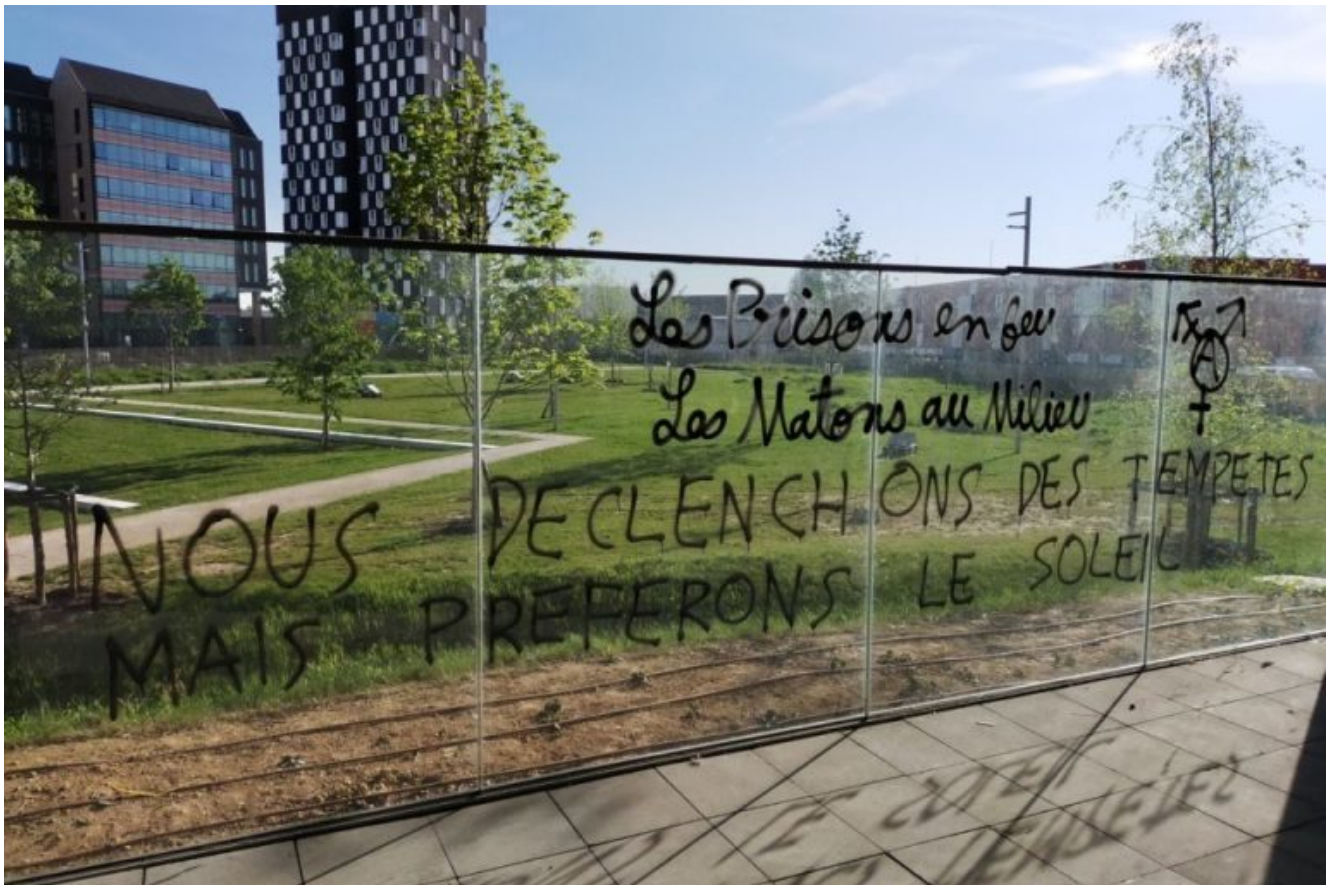 Les Prisons en feu
Les Matons au Milieu
A
NOUS DECLENCHONS DES TEMPETES
MAIS PREFERONS LE SOLEIL